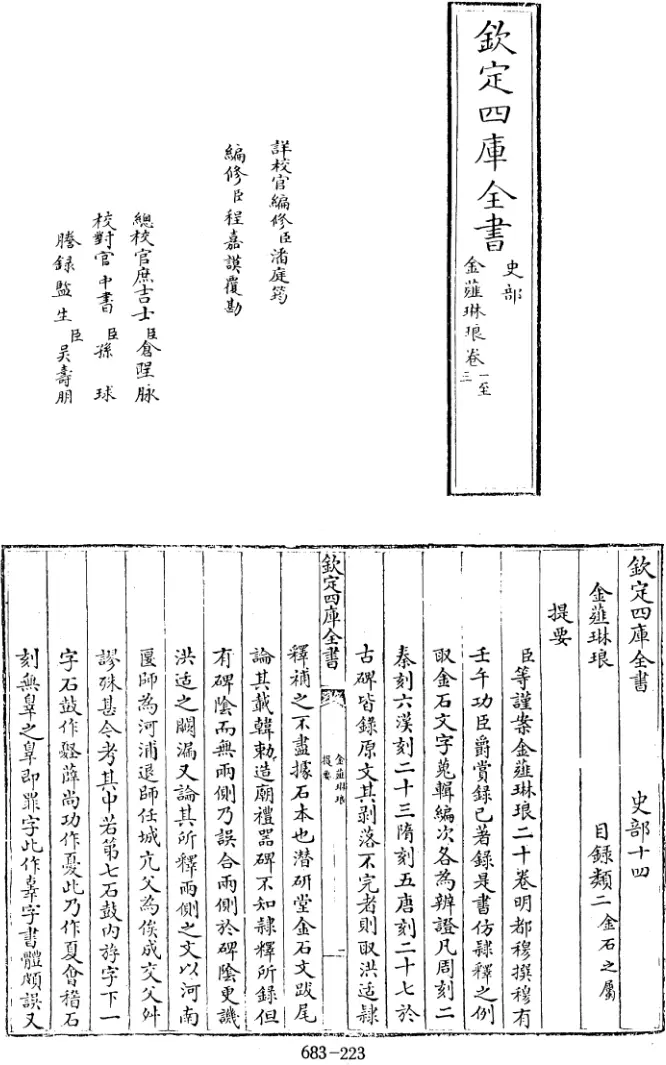 欽定四庫全書
史部
金薤琳琅卷一至三
詳校官編修臣潘庭筠
編修臣程嘉謨覆勘
總校官庶吉士臣倉聖脉
校對官中書臣孫球
謄錄監生臣吳壽朋
欽定四庫全書 史部十四
金薤琳琅 目錄類二金石之屬
提要
臣等謹案金薤琳琅二十卷明都穆撰穆有
壬午功臣爵賞錄已著錄是書仿隸釋之例
取金石文字蒐輯編次各為辨證凡周刻二
秦刻六漢刻二十三隋刻五唐刻二十七於
古碑皆錄原文其剥落不完者則取洪适隸
欽定四庫全書
金薤琳琅
提要
二
釋補之不盡據石本也潜研堂金石文跋尾
論其載韓勅造廟禮噐碑不知隸釋所錄但
有碑陰而無兩側乃誤合兩側於碑陰更譏
洪适之闕漏又論其所釋兩側之文以河南
匽師為河浦退師任城亢父為俟成交父舛
謬殊甚今考其中若第七石鼓内斿字下一
字石鼓作薛尚功作憂此乃作夏會稽石
刻無辠之辠即罪字此作辜字書體頗誤又
683-223